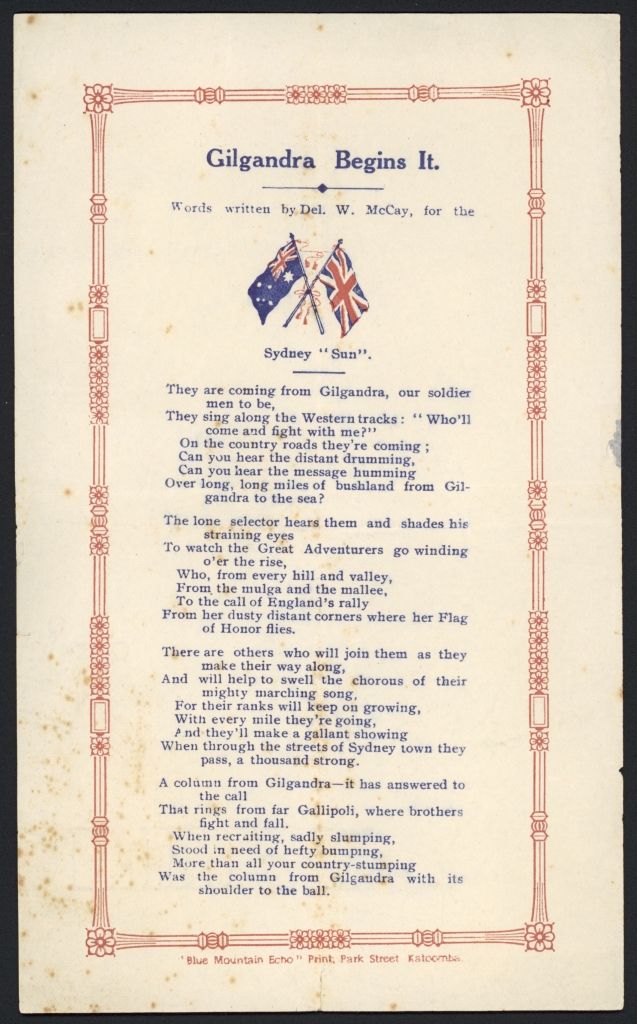 Gilgandra Begins It.
Words written by Del. W. McCay, for the
Sydney "Sun".
They are coming from Gilgandra, our soldier
men to be,
They sing along the Western tracks : " Who'll
come and fight with me?"
On the country roads they're coming ;
Can you hear the distant drumming,
Can you hear the message humming
Over long, long miles of bushland from Gil-
gandra to the sea?
The lone selector hears them and shades his
straining eyes
To watch the Great Adventurers go winding
o'er the rise,
Who, from every hill and valley,
From the mulga and the mallee,
To the call of England's rally
From her dusty distant corners where her Flag
of Honor flies.
There are others who will join them as they
make their way along,
And will help to swell the chorous of their
mighty marching song,
For their ranks will keep on growing,
With every mile they're going,
And they'll make a gallant showing
When through the streets of Sydney town they
pass, a thousand strong.
A column from Gilgandra—it has answered to
the call
That rings from far Gallipoli, where brothers
fight and fall.
When recruiting, sadly slumping,
Stood in need of hefty bumping,
More than all your country-stumping
Was the column from Gilgandra with its
shoulder to the ball.
'Blue Mountain Echo" Print, Park Street Katoomba.